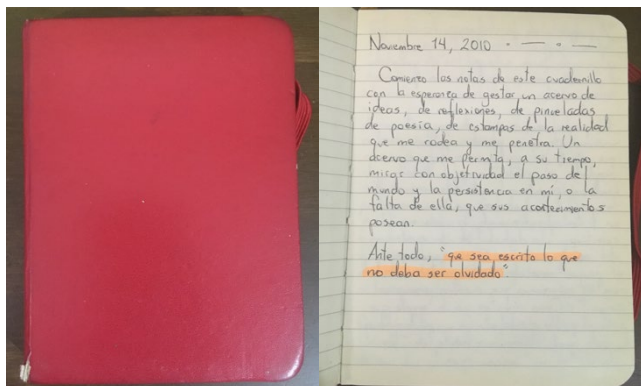 Noviembre 14, 2010
Comienzo las notas de este cuadernillo
con la esperanza de gestar un acervo de
ideas, de reflexiones, de pinceladas
de poesía, de estampas de la realidad
que me rodea y me penetra. Un
acervo que me permita, a su tiempo,
mirar con objetividad el paso de
mundo y la persistencia en mí, o la
falta de ella, que sus acontecimientos
posean.
Ante todo, "que sea escrito lo que
no deba ser olvidado".